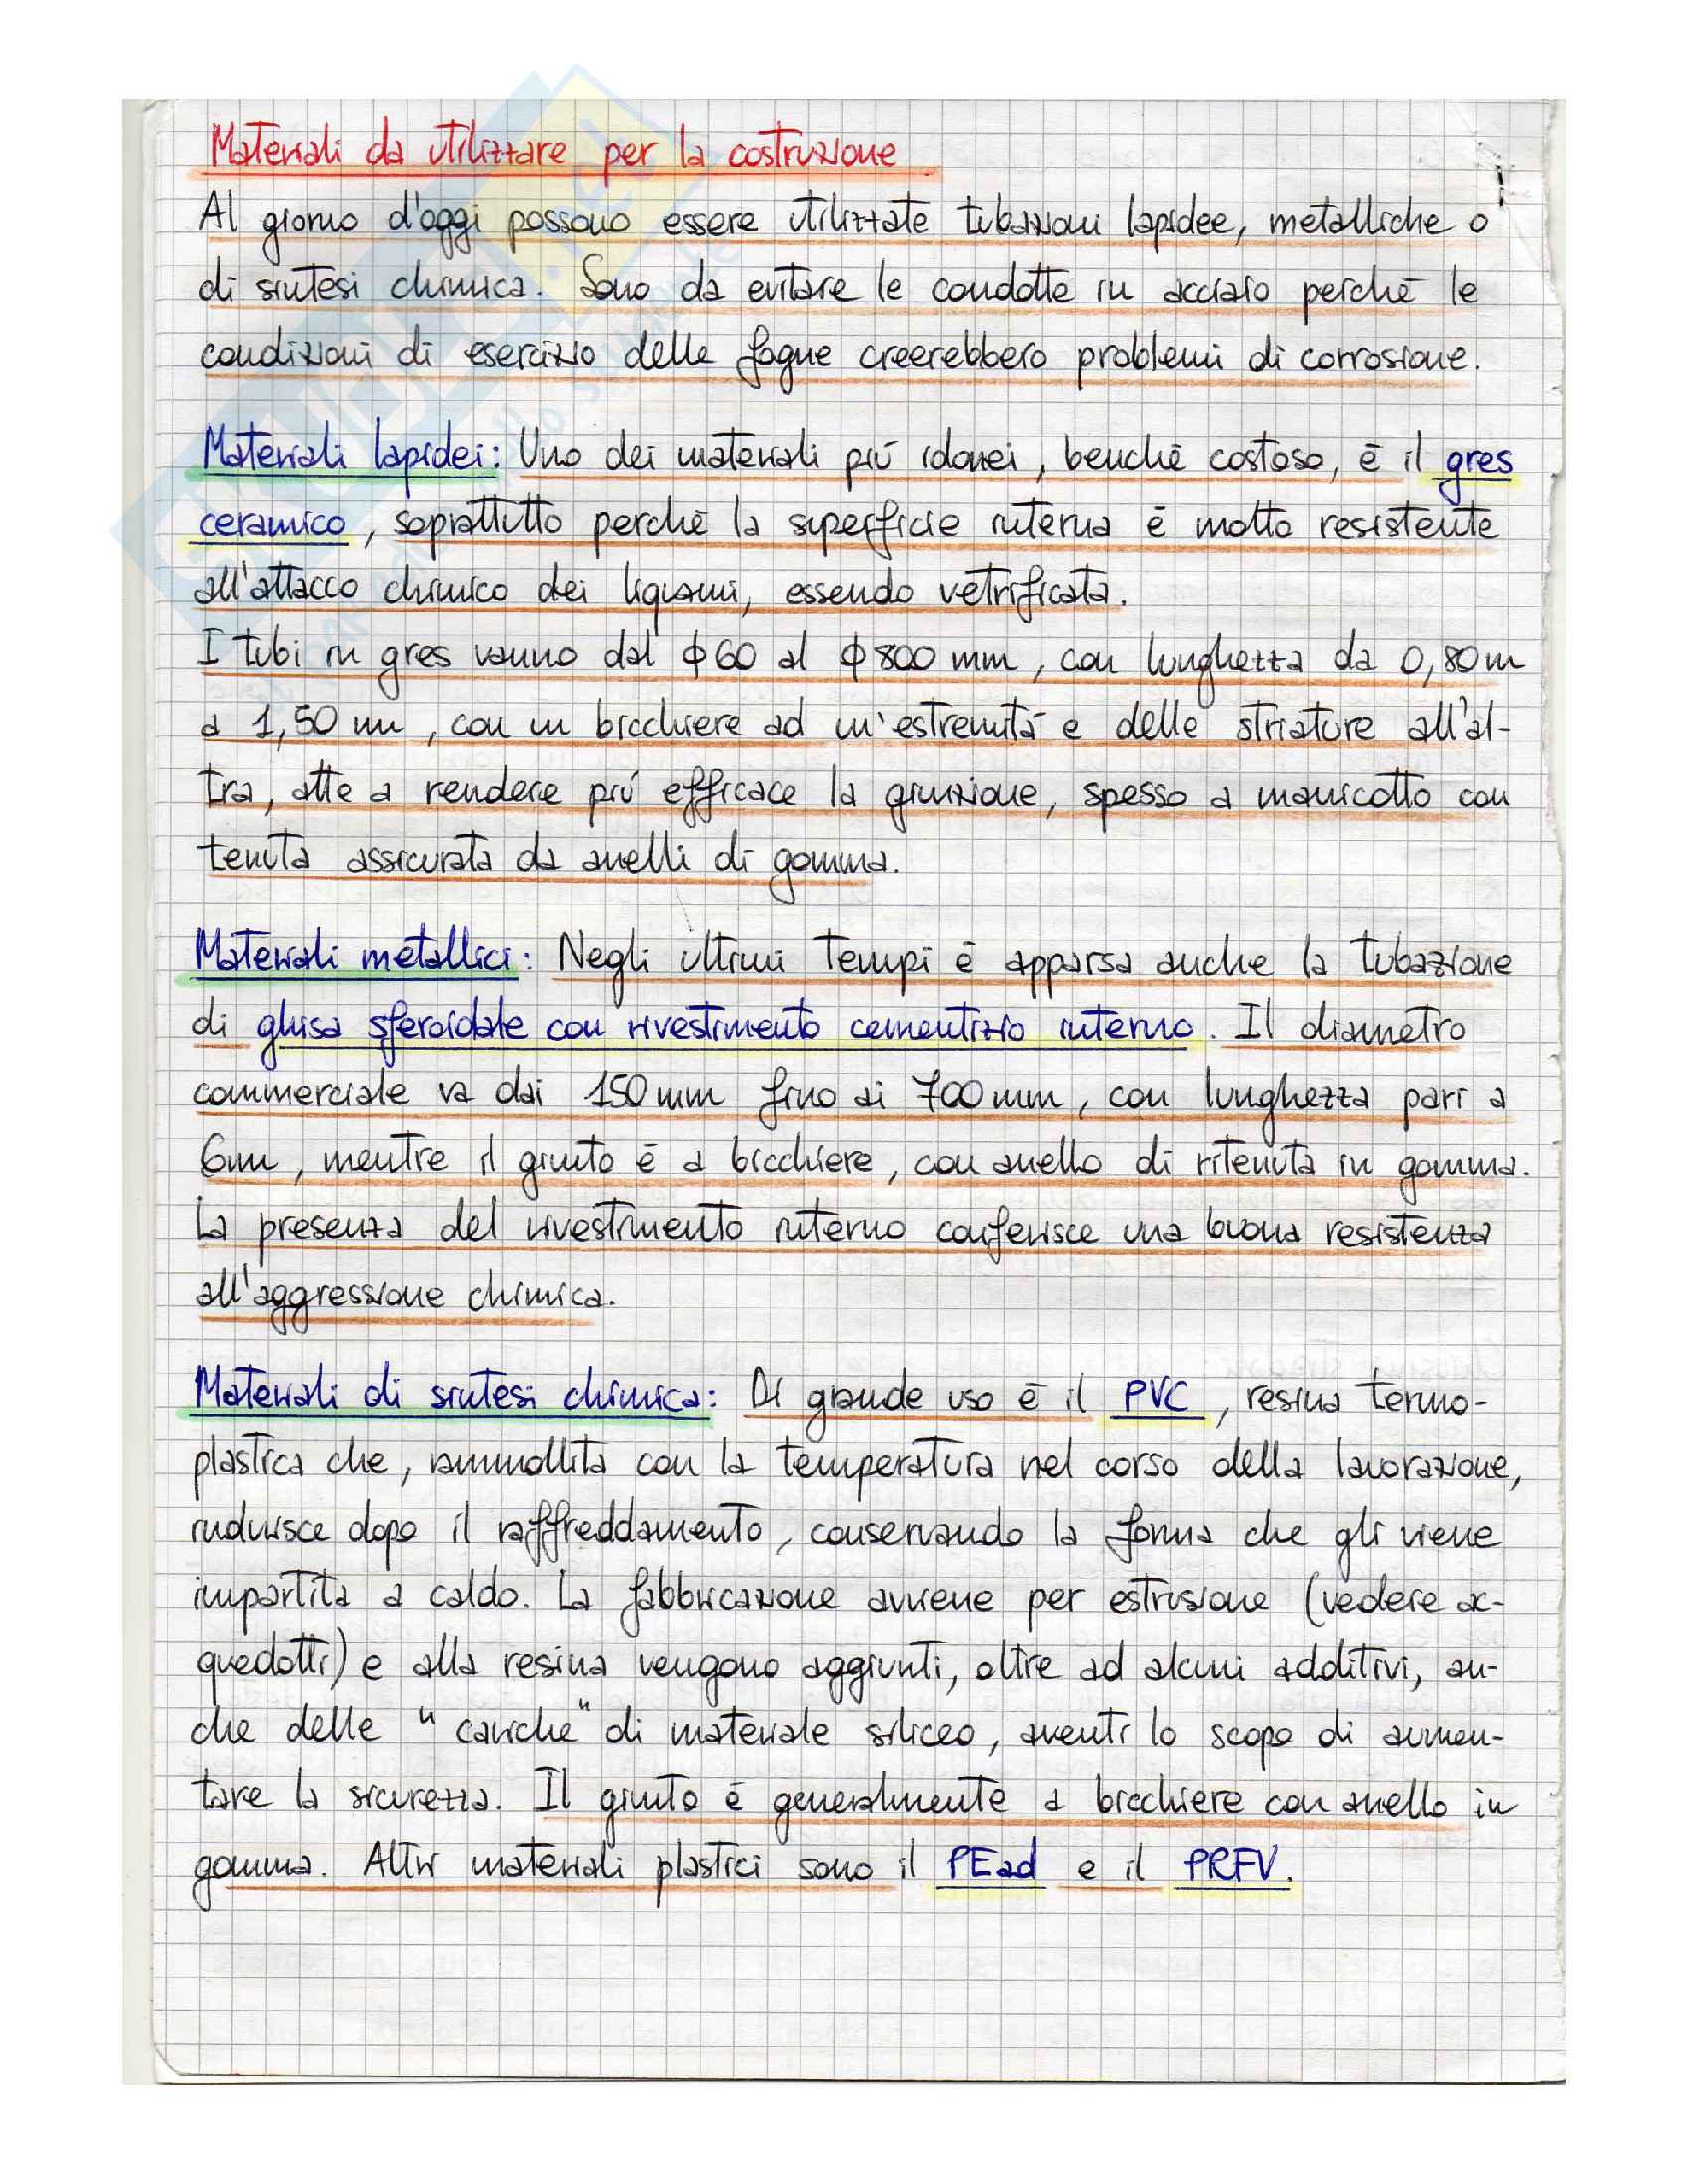 Materiali da utilizzare per la costruzione
Al giorno d'oggi possono essere utilizzate tubazioni lapidee, metalliche o
di sintesi chimica. Sono da evitare le condotte in acciaio perchè le
condizioni di esercizio delle fogne creerebbero problemi di corrosione.
Materiali lapidei: Uno dei materiali più idonei, benchè costoso, è il gres
ceramico, soprattutto perchè la superficie interna è molto resistente
all'attacco chimico dei liquami, essendo vetrificata.
I tubi in gres vanno dal ϕ60 al ϕ800 mm, con lunghezza da 0,80 m
a 1,50 m, con un bicchiere ad un'estremità e delle striature all'al-
tra, atte a rendere più efficace la giunzione, spesso a manicotto con
tenuta assicurata da anelli di gomma.
Materiali metallici: Negli ultimi tempi è apparsa anche la tubazione
di ghisa sferoidale con rivestimento cementizio interno. Il diametro
commerciale va dai 150 mm fino ai 700 mm, con lunghezza pari a
6m, mentre il giunto è a bicchiere, con anello di ritenuta in gomma.
La presenza del rivestimento interno conferisce una buona resistenza
all'aggressione chimica.
Materiali di sintesi chimica: Di grande uso è il PVC, resina termo-
plastica che, rammollita con la temperatura nel corso della lavorazione,
indurisce dopo il raffreddamento, conservando la forma che gli viene
impartita a caldo. La fabbricazione avviene per estrusione (vedere ac-
quedotti) e alla resina vengono aggiunti, oltre ad alcuni additivi, an-
che delle "cariche" di materiale siliceo, aventi lo scopo di aumen-
tare la sicurezza. Il giunto è generalmente a bicchiere con anello in
gomma. Altri materiali plastici sono il PEad e il PRFV.